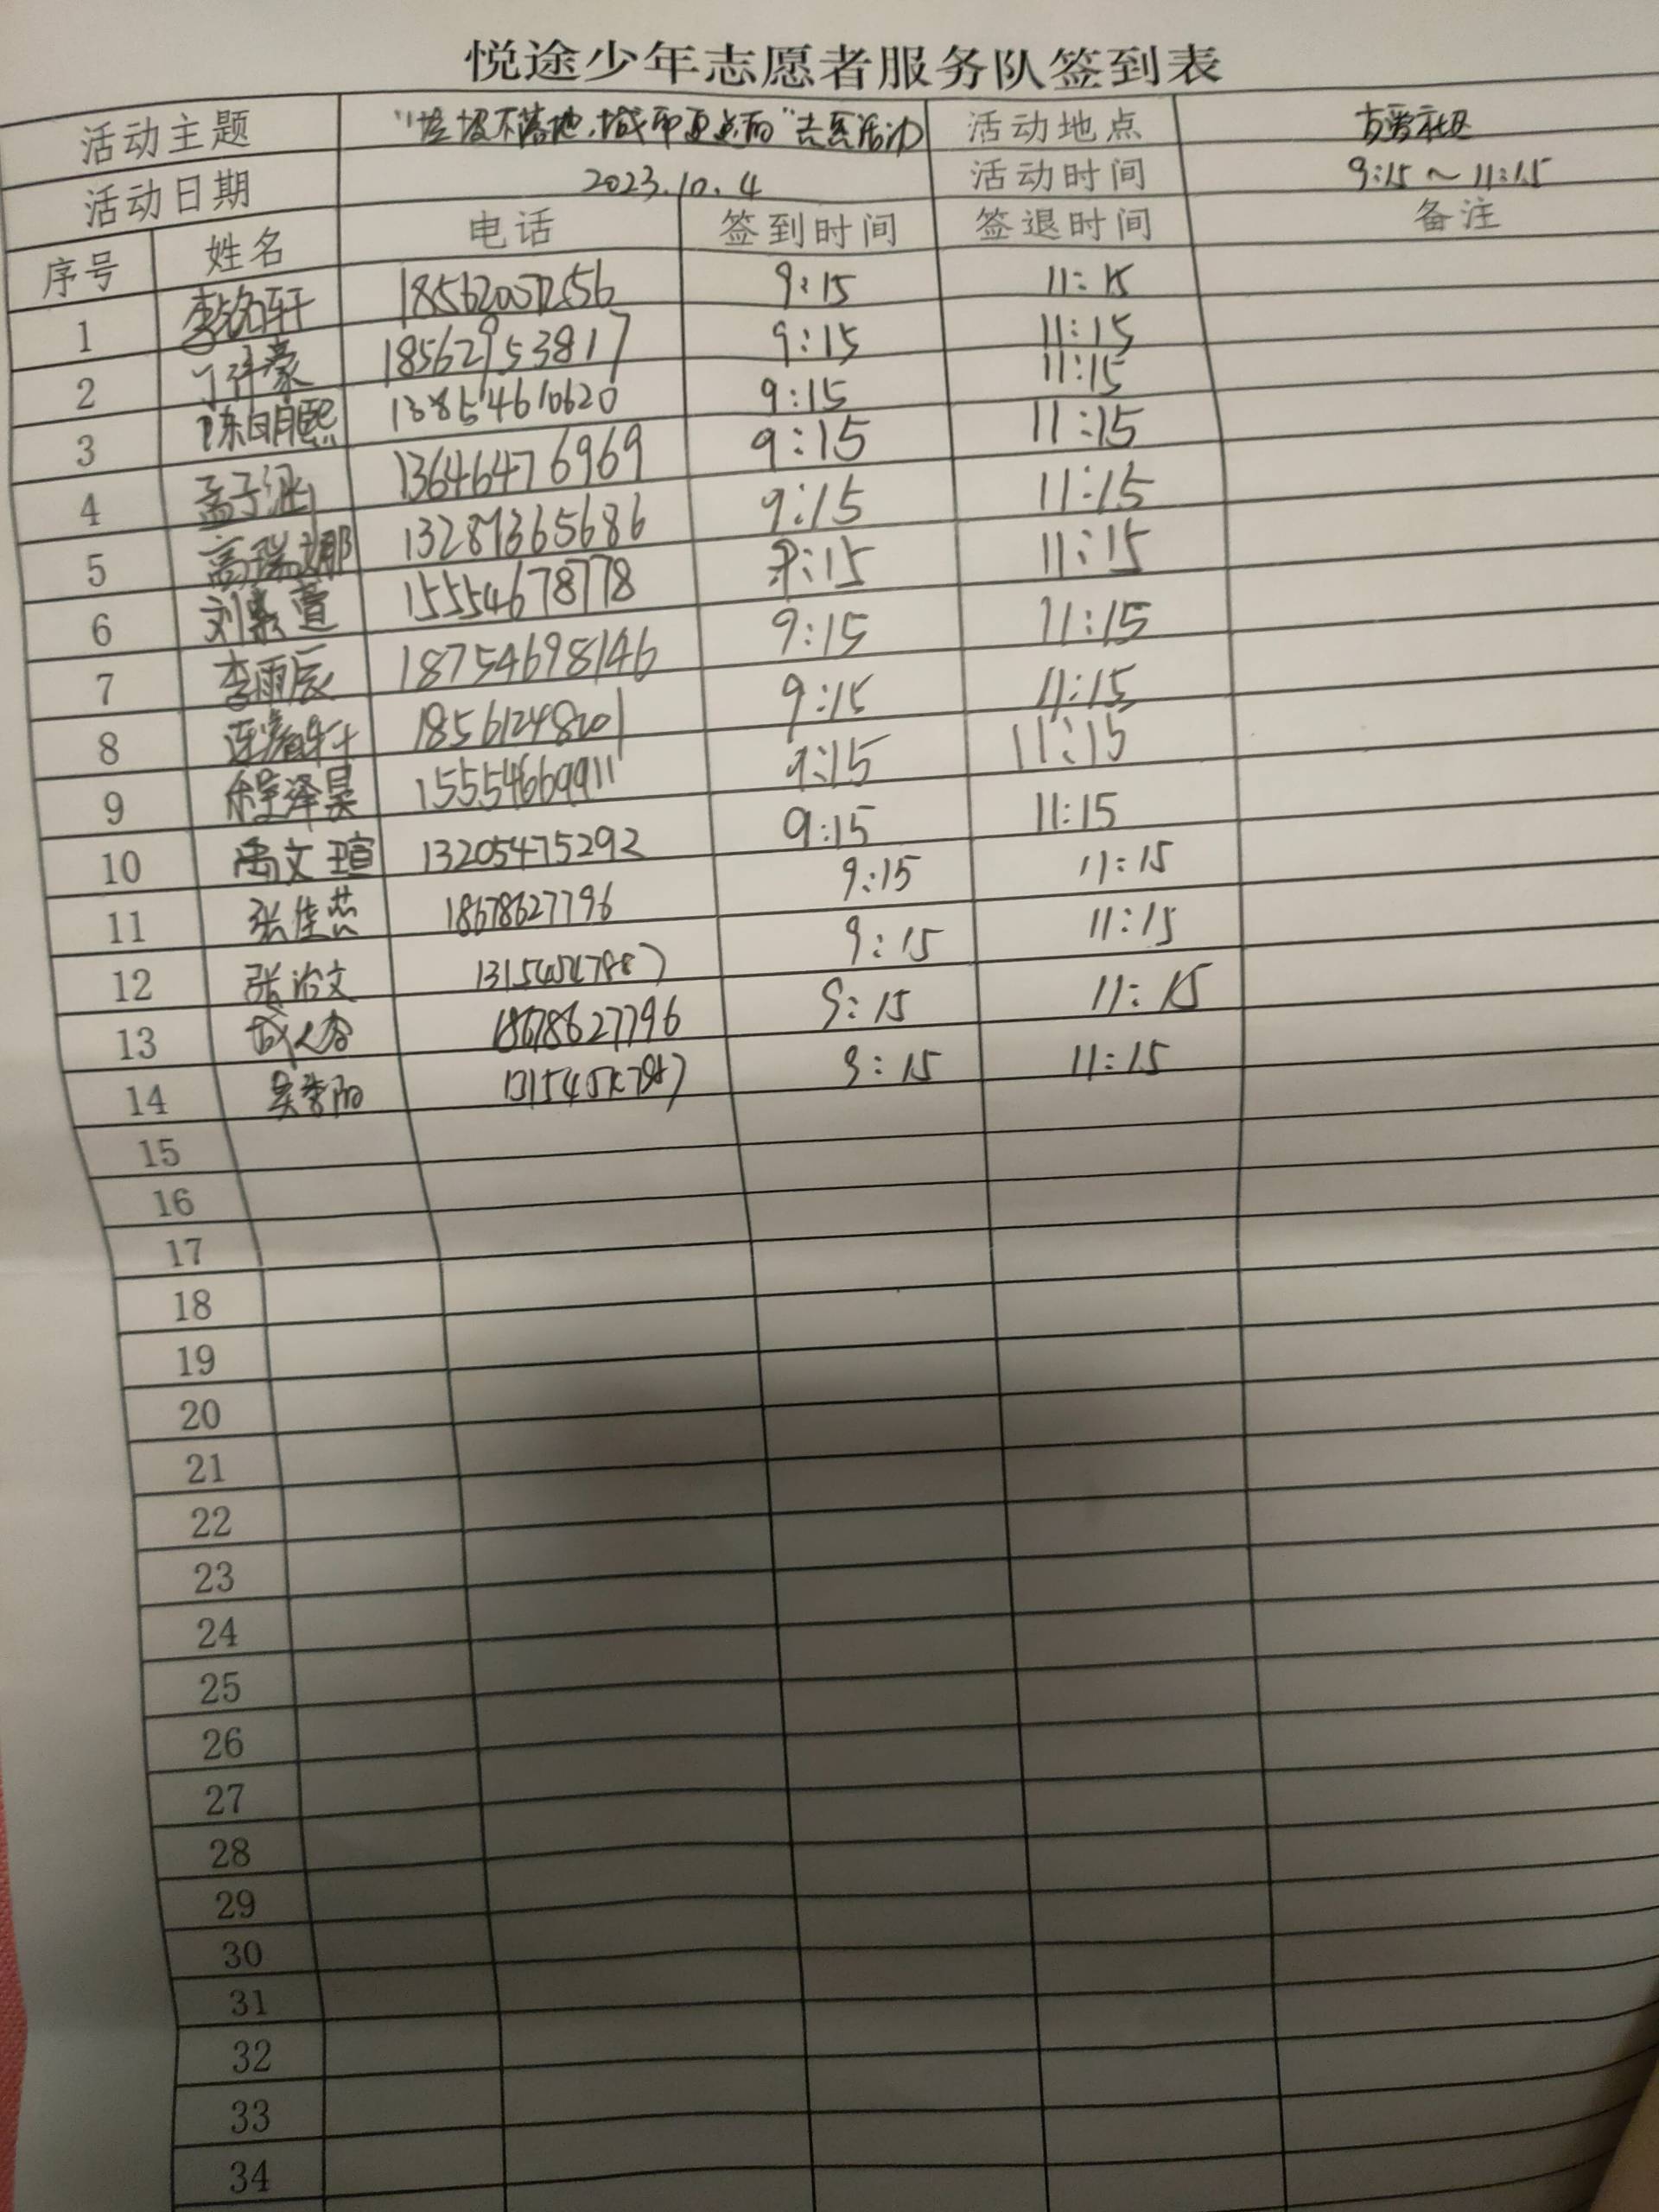 悦途少年志愿者服务队签到表
活动主题 "垃圾不落地,城市更美丽"志愿活动 活动地点 友爱社区
活动日期 2023.10.4 活动时间 9:15~11:15
序号 姓名 电话 签到时间 签退时间 备注
1 李铭轩 9:15 11:15
2 18562953817 9:15 11:15
3 陈明熙 13854610620 9:15 11:15
4 孟子涵 13646476969 9:15 11:15
5 13287365686 9:15 11:15
6 15554678778 9:15 11:15
7 李雨辰 18754698146 9:15 11:15
8 18561248201 9:15 11:15
9 程泽昊 15554669911 9:15 11:15
10 禹文瑄 13205475292 9:15 11:15
11 张佳芸 18678627796 9:15 11:15
12 张治文 9:15 11:15
13 18678627796 9:15 11:15
14 9:15 11:15
15
16
17
18
19
20
21
22
23
24
25
26
27
28
29
30
31
32
33
34